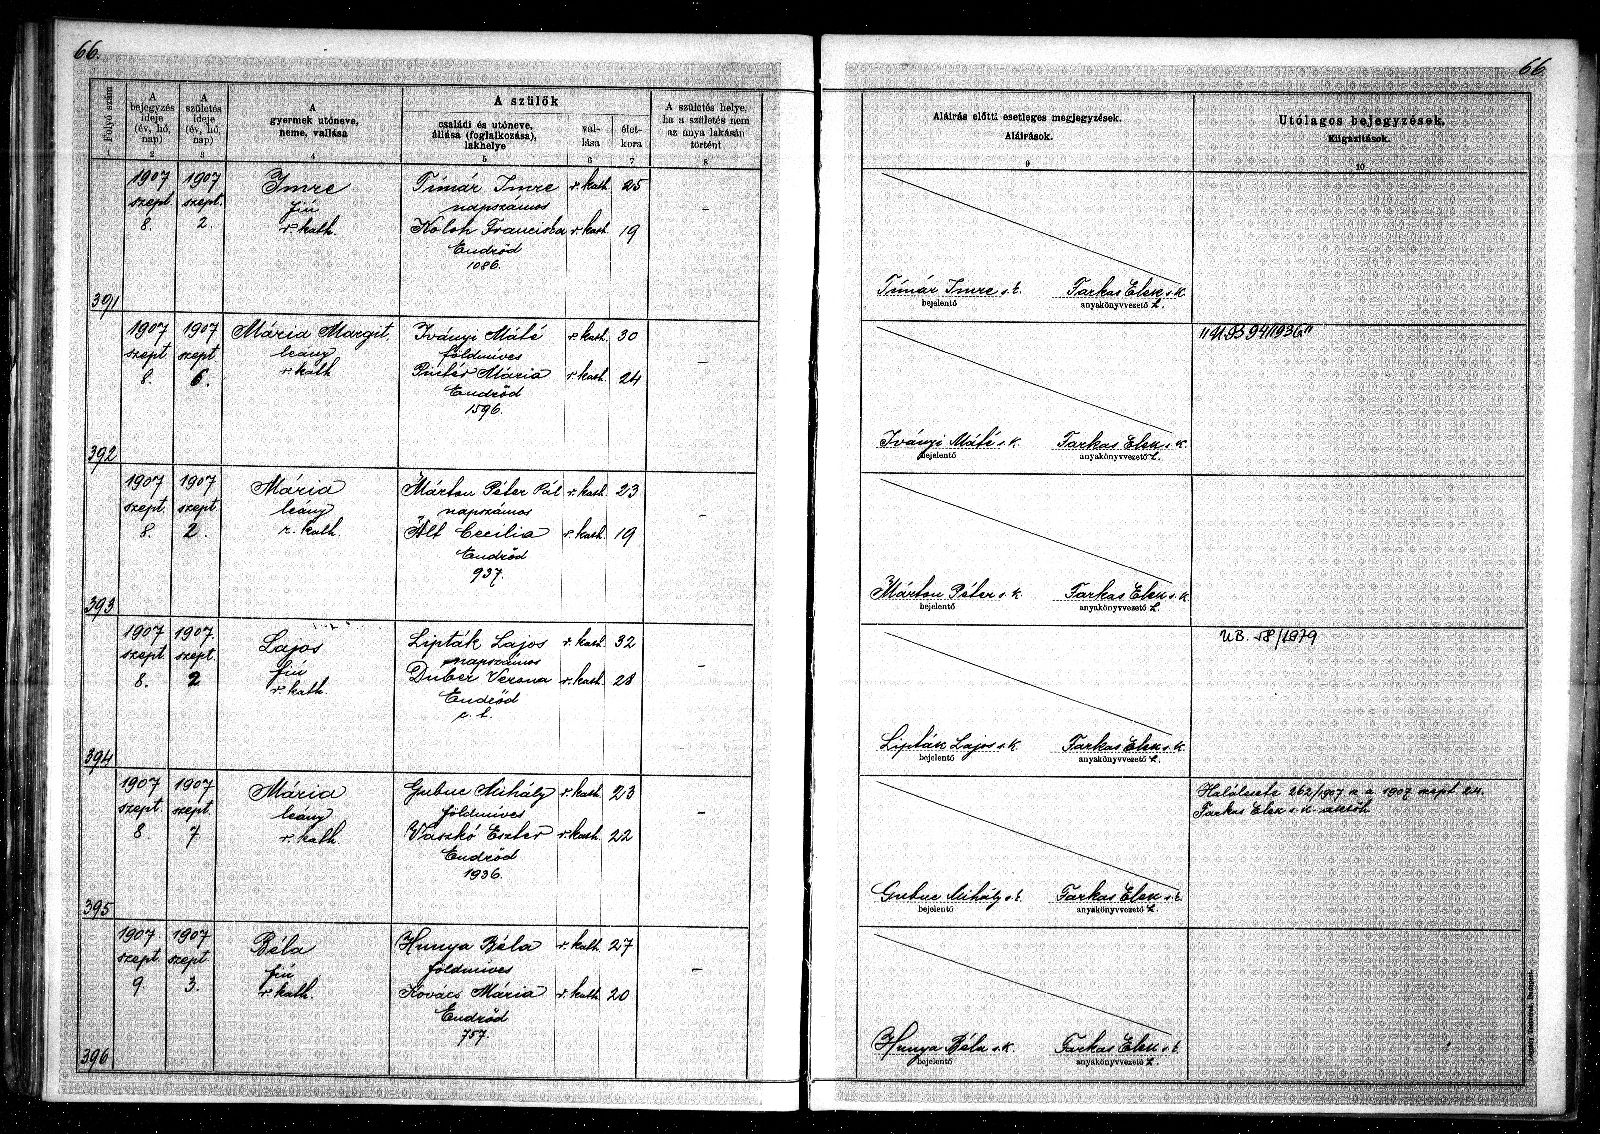 66.
66.
Folyó szám
A bejegyzés ideje (év, hó, nap)
A születés ideje (év, hó, nap)
A gyermek utóneve, neme, vallása
A szülők
családi és utóneve, állása (foglalkozása), lakhelye
vallása
életkora
A születés helye, ha a születés nem az anya lakásán történt
Aláírás előtti esetleges megjegyzések.
Aláírások.
Utólagos bejegyzések.
Kiigazítások.
1 2 3 4 5 6 7 8 9 10
1907 1907 Imre Timár Imre r. kath. 25
szept. szept. fiú napszámos
8. 2. r. kath. Koloh Franciska r. kath. 19
Endrőd
1086.
391
Timár Imre s. k. Farkas Elek s. k.
bejelentő anyakönyvvezető h.
1907 1907 Mária Margit Iványi Máté r. kath. 30
szept szept leány földmíves
8. 6. r. kath Pintér Mária r. kath. 24
Endrőd
1596.
392
Iványi Máté s. k. Farkas Elek s. k.
bejelentő anyakönyvvezető h.
1907 1907 Mária Márton Péter Pál r. kath. 23
szept. szept. leány napszámos
8. 2. r. kath. Alt Cecilia r. kath. 19
Endrőd
937.
393
Márton Péter s. k. Farkas Elek s. k.
bejelentő anyakönyvvezető h.
1907 1907. Lajos Lipták Lajos r. kath. 32
szept szept. fiú napszámos
8. 2 r. kath. Duber Verona r. kath. 28
Endrőd
c. t.
394
Lipták Lajos s. k. Farkas Elek s. k.
bejelentő anyakönyvvezető h.
UB. 18/1979
1907 1907 Mária Gubuc Mihály r. kath. 23
szept. szept. leány földmíves
8 7 r. kath. Vaszkó Eszter r. kath. 22
Endrőd
1936.
395
Gubuc Mihály s. k. Farkas Elek s. k.
bejelentő anyakönyvvezető h.
Halálesete 262/1907 a. a. 1907 szept 24.
Farkas Elek s. k.
1907 1907 Béla Hunya Béla r. kath. 27
szept. szept fiú földmíves
9 3. r. kath. Kovács Mária r. kath. 20
Endrőd
757.
396
Hunya Béla s. k. Farkas Elek s. k.
bejelentő anyakönyvvezető h.